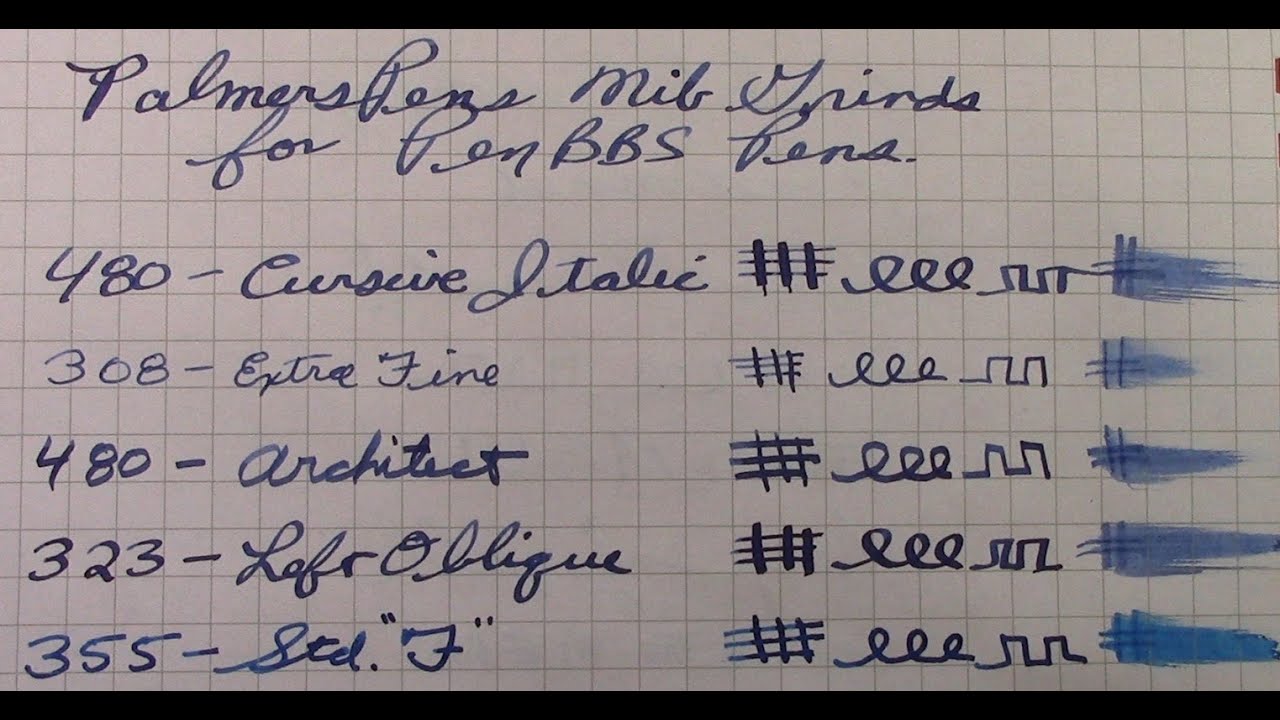 PalmersPens Nib Grinds
for PenBBS Pens.
480 - Cursive Italic
308 - Extra Fine
480 - Architect
323 - Left Oblique
355 - Std. "F"